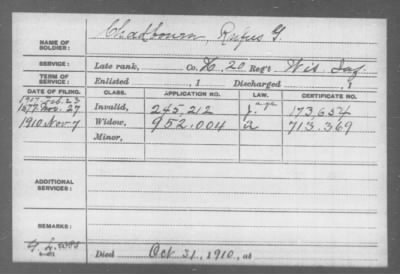 NAME OF SOLDIER: Chadbourn, Rufus G.
SERVICE: Late rank, Co. K, 20 Reg't Wis. Inf.
TERM OF SERVICE: Enlisted , 1 Discharged , 1
DATE OF FILING. CLASS. APPLICATION NO. LAW. CERTIFICATE NO.
1877 Nov. 27 Invalid, 245,212 173,654
1910 Nov. 7 Widow, 952.004 a 713.369
Minor,
ADDITIONAL SERVICES:
REMARKS:
Died Oct 31, 1910, at